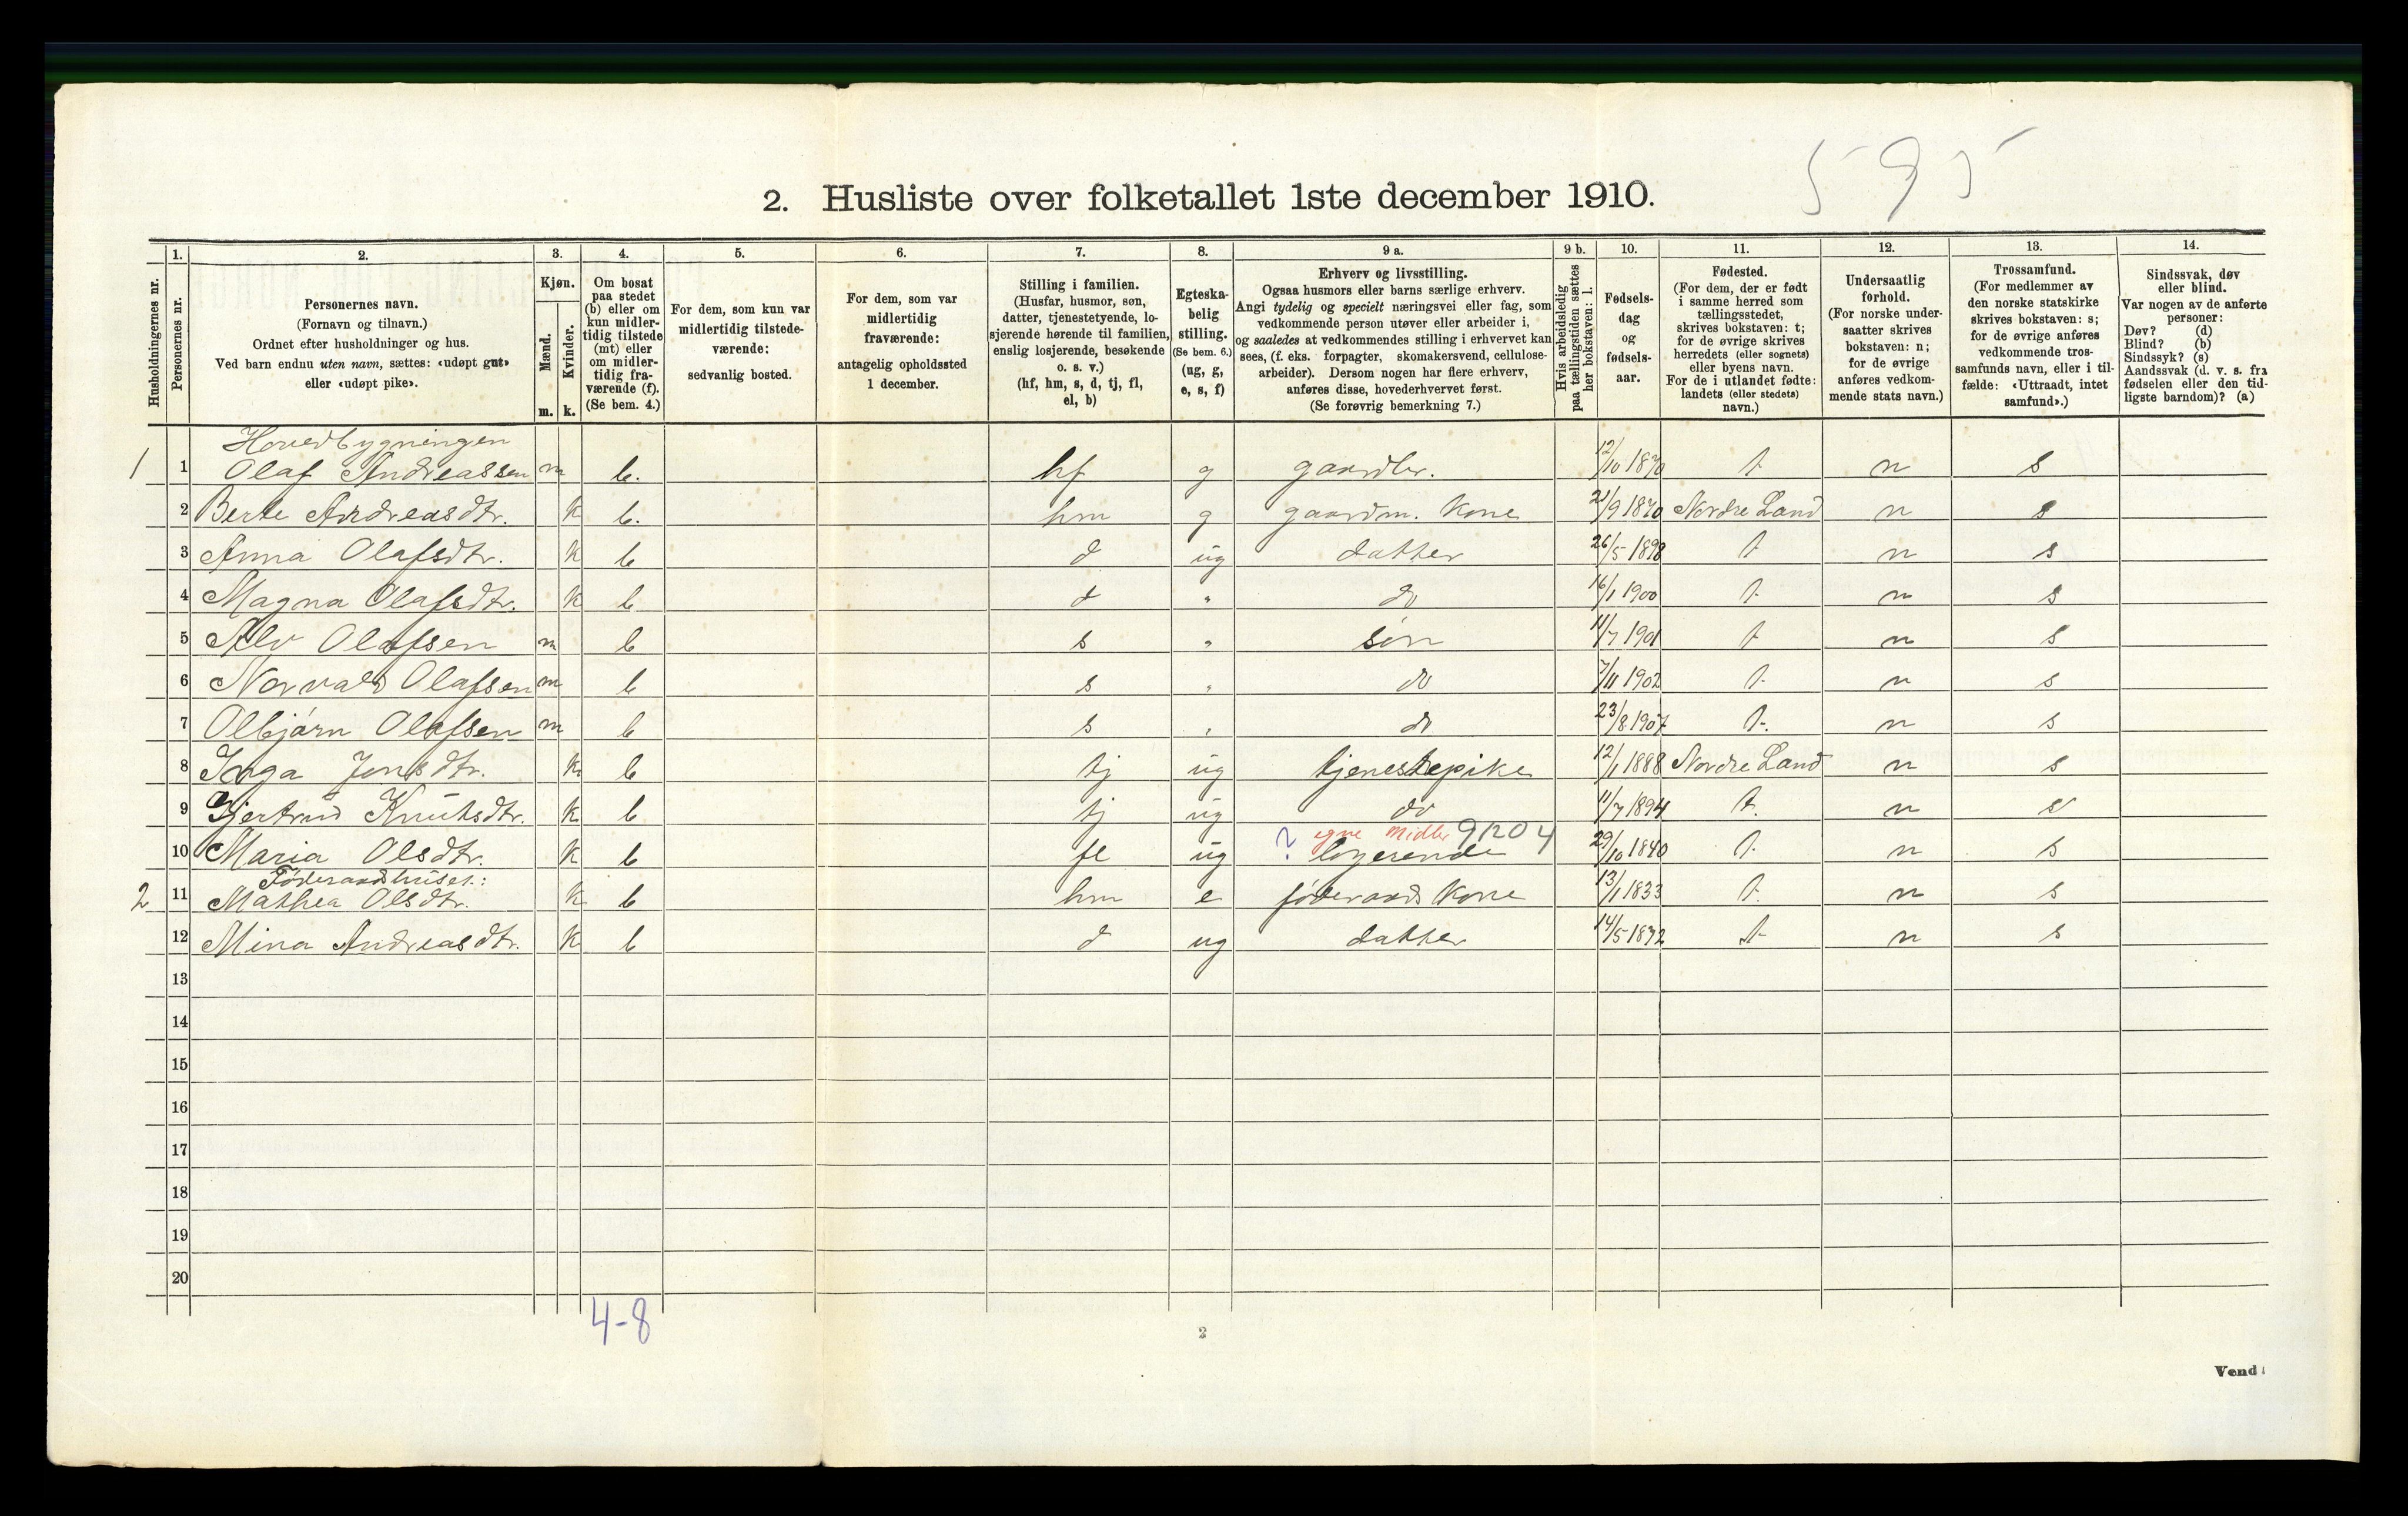 595
2. Husliste over folketallet 1ste december 1910.
Husholdningernes nr.
1.
Personernes nr.
2.
Personernes navn.
(Fornavn og tilnavn.)
Ordnet efter husholdninger og hus.
Ved barn endnu uten navn, sættes: «udøpt gut»
eller «udøpt pike».
3.
Kjøn.
Mænd.
Kvinder.
m. k.
4.
Om bosat
paa stedet
(b) eller om
kun midler-
tidig tilstede
(mt) eller
om midler-
tidig fra-
værende (f).
(Se bem. 4.)
5.
For dem, som kun var
midlertidig tilstede-
værende:
sedvanlig bosted.
6.
For dem, som var
midlertidig
fraværende:
antagelig opholdssted
1 december.
7.
Stilling i familien.
(Husfar, husmor, søn,
datter, tjenestetyende, lo-
sjerende hørende til familien,
enslig losjerende, besøkende
o. s. v.)
(hf, hm, s, d, tj, fl,
el, b)
8.
Egteska-
belig
stilling.
(Se bem. 6.)
(ug, g,
e, s, f)
9 a.
Erhverv og livsstilling.
Ogsaa husmors eller barns særlige erhverv.
Angi tydelig og specielt næringsvei eller fag, som
vedkommende person utøver eller arbeider i,
og saaledes at vedkommendes stilling i erhvervet kan
sees, (f. eks. forpagter, skomakersvend, cellulose-
arbeider). Dersom nogen har flere erhverv,
anføres disse, hovederhvervet først.
(Se forøvrig bemerkning 7.)
9 b.
Hvis arbeidsledig
paa tællingstiden sættes
her bokstaven: l.
10.
Fødsels-
dag
og
fødsels-
aar.
11.
Fødested.
(For dem, der er født
i samme herred som
tællingsstedet,
skrives bokstaven: t;
for de øvrige skrives
herredets (eller sognets)
eller byens navn.
For de i utlandet fødte:
landets (eller stedets)
navn.)
12.
Undersaatlig
forhold.
(For norske under-
saatter skrives
bokstaven: n;
for de øvrige
anføres vedkom-
mende stats navn.)
13.
Trossamfund.
(For medlemmer av
den norske statskirke
skrives bokstaven: s;
for de øvrige anføres
vedkommende tros-
samfunds navn, eller i til-
fælde: «Uttraadt, intet
samfund».)
14.
Sindssvak, døv
eller blind.
Var nogen av de anførte
personer:
Døv? (d)
Blind? (b)
Sindssyk? (s)
Aandssvak (d. v. s. fra
fødselen eller den tid-
ligste barndom)? (a)
Hovedbygningen
1 1 Olaf Andreassen m b. hf g gaardbr. 12/10 1870 t n s
2 Berte Andreasdtr. k b. hm g gaardm. kone 21/9 1870 Nordre Land n s
3 Anna Olafsdtr. k b d ug datter 26/5 1898 t n s
4 Magna Olafsdtr. k b d " do 16/1 1900 t n s
5 Alv Olafsen m b s " søn 11/7 1901 t n s
6 Norvald Olafsen m b s " do 7/11 1902 t n s
7 Olbjørn Olafsen m b s " do 23/8 1907 t. n s
8 Inga Jonsdtr. k b tj ug tjenestepike 12/1 1888 Nordre Land n s
9 Gjertrud Knutsdtr. k b tj ug do 11/7 1894 t. n s
? egne midler 91204
10 Maria Olsdtr. k b fl ug logerende 29/10 1840 t. n s
Føderaadshuset:
2 11 Mathea Olsdtr. k b hm e føderaads kone 13/1 1833 t. n s
12 Mina Andreasdtr. k b d ug datter 14/5 1872 t n s
13
14
15
16
17
18
19
20
4-8
2
Vend!